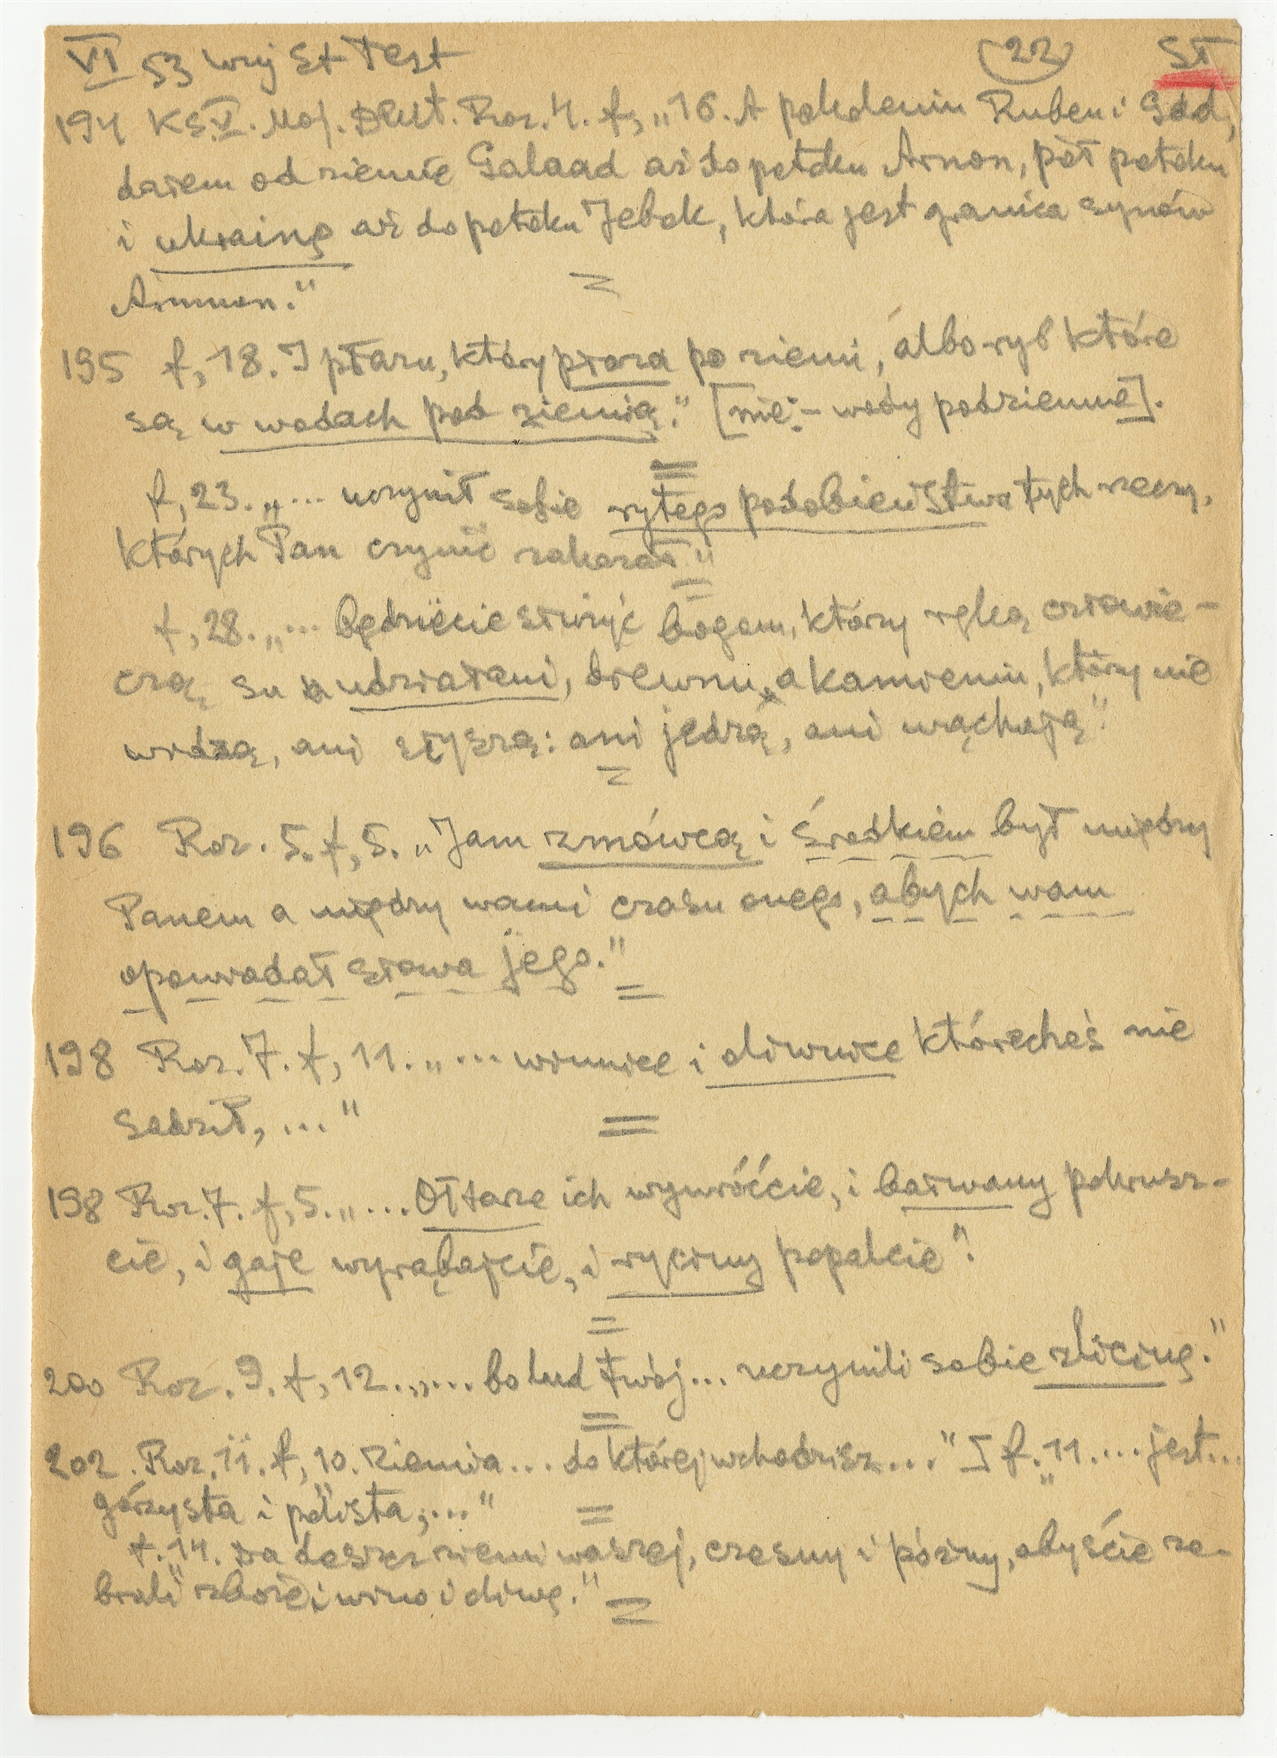 VI 53 Wuj St Test (22) ST
194 KS.V. Moj. Deut. Roz. 4. f, „16. A pokoleniu Ruben i Gad,
dałem od ziemie Galaad aż do potoku Arnon, pół potoku
i ukrainę aż do potoku Jebok, która jest granica synów
Ammon."
195 f, 18. I płazu, który płoza po ziemi, álbo ryb które
są w wodach pod ziemią." [nie:- wody podziemne].
f, 23. „... uczynił sobie rytego podobieństwa tych rzeczy,
których Pan czynić zakazał"
f, 28. „... Będziecie służyć bogom, którzy ręką człowie-
czą su udziałani, drewnu, a kamieniu, którzy nie
widzą, ani słyszą: ani jedzą, ani wąchają"
196 Roz. 5. f, 5. „Jam zmówcą i średkiem był między
Panem a między wami czasu onego, abych wam
opowiadał słowa jego."
198 Roz. 7. f, 11. „... winnice i oliwnice którecheś nie
sadził, ..."
198 Roz. 7. f, 5. „... Ołtarze ich wywróćcie, i bałwany pokrusz-
cie, i gaje wyrąbajcie, i ryciny popalcie".
200 Roz. 9. f, 12. „... bo lud twój... uczynili sobie zlicinę."
202. Roz. 11. f, 10. Ziemia... do której wchodzisz..." I f. „11. ... jest...
górzysta i polista, ..."
f. 14. Da deszcz ziemi waszej, czesny i późny, abyście ze-
brali zboże i wino i oliwę."